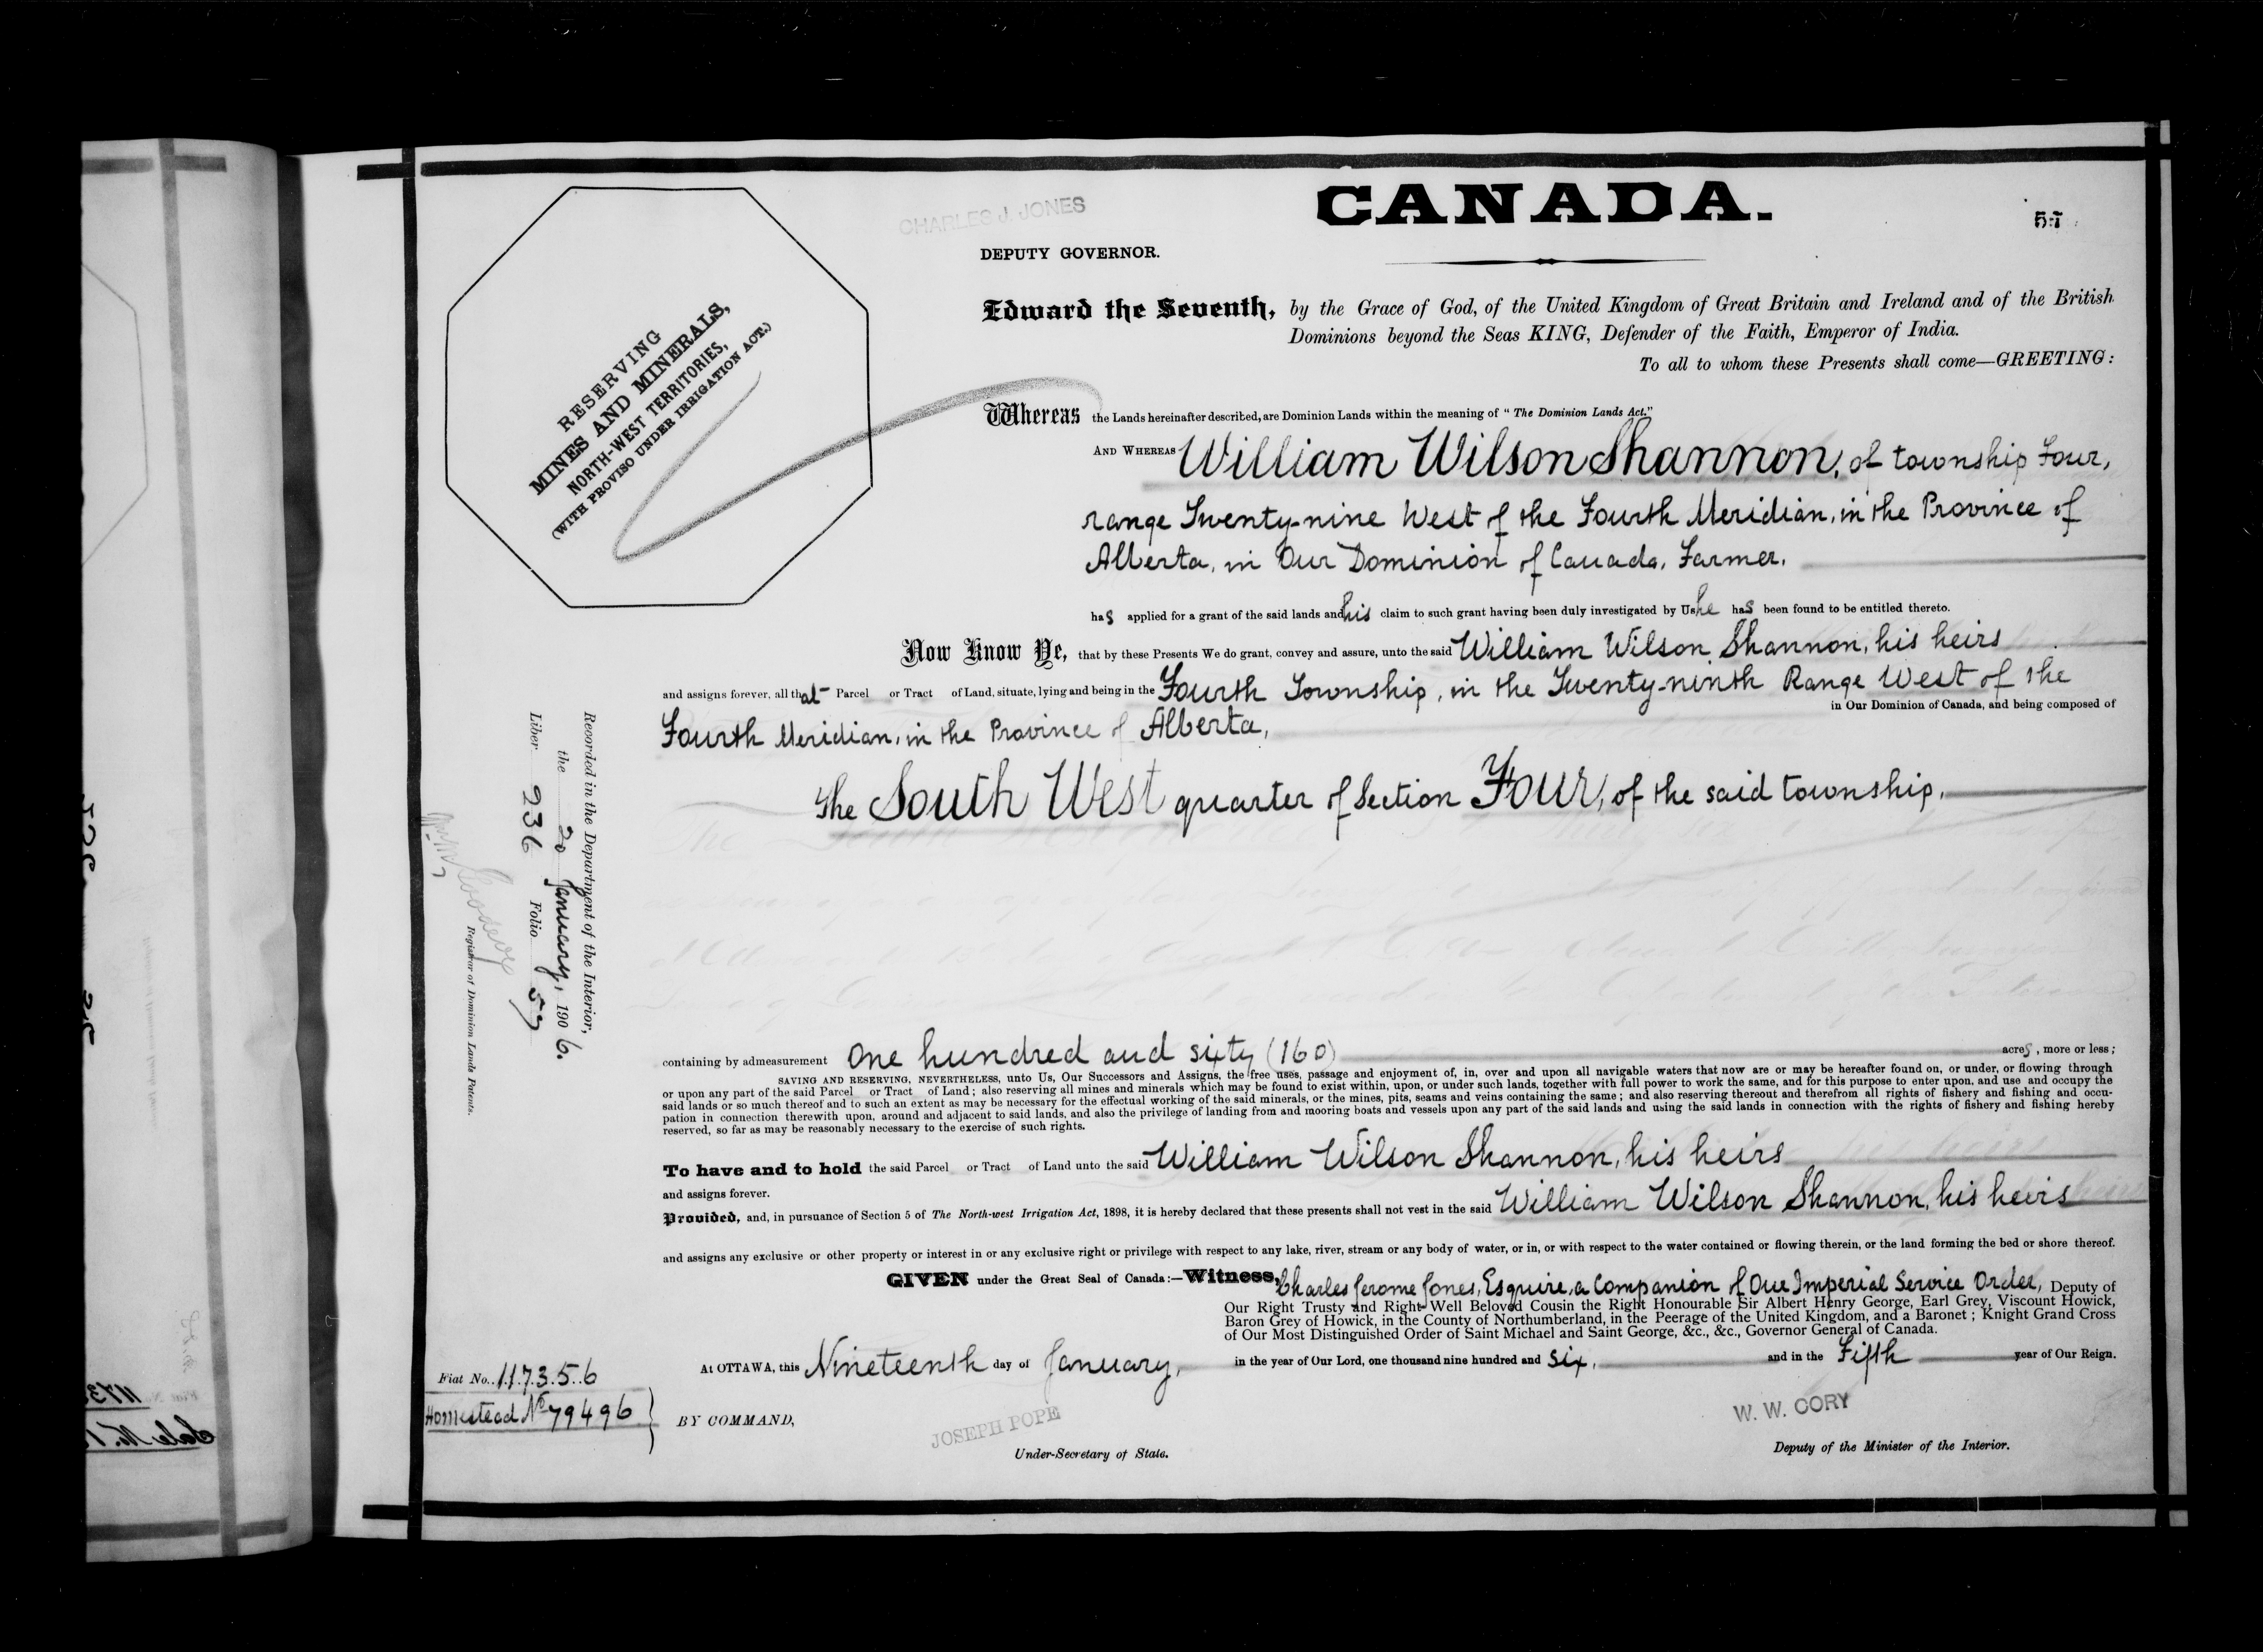 CANADA.
CHARLES J. JONES
DEPUTY GOVERNOR.
RESERVING
MINES AND MINERALS,
NORTH-WEST TERRITORIES,
(WITH PROVISO UNDER IRRIGATION ACT.)
Edward the Seventh, by the Grace of God, of the United Kingdom of Great Britain and Ireland and of the British
Dominions beyond the Seas KING, Defender of the Faith, Emperor of India.
To all to whom these Presents shall come—GREETING:
Whereas the Lands hereinafter described, are Dominion Lands within the meaning of "The Dominion Lands Act."
AND WHEREAS William Wilson Shannon, of township Four,
range Twenty-nine West of the Fourth Meridian, in the Province of
Alberta, in Our Dominion of Canada, Farmer,
has applied for a grant of the said lands and his claim to such grant having been duly investigated by Us he has been found to be entitled thereto.
Now Know Ye, that by these Presents We do grant, convey and assure, unto the said William Wilson Shannon, his heirs
and assigns forever, all that Parcel or Tract of Land, situate, lying and being in the Fourth Township, in the Twenty-ninth Range West of the
in Our Dominion of Canada, and being composed of
Fourth Meridian, in the Province of Alberta,
The South West quarter of Section Four, of the said township,
Recorded in the Department of the Interior,
the 20 January, 1906.
Liber 236 Folio 57
Registrar of Dominion Lands Patents.
containing by admeasurement One hundred and sixty (160) acres, more or less;
SAVING AND RESERVING, NEVERTHELESS, unto Us, Our Successors and Assigns, the free uses, passage and enjoyment of, in, over and upon all navigable waters that now are or may be hereafter found on, or under, or flowing through
or upon any part of the said Parcel or Tract of Land; also reserving all mines and minerals which may be found to exist within, upon, or under such lands, together with full power to work the same, and for this purpose to enter upon, and use and occupy the
said lands or so much thereof and to such an extent as may be necessary for the effectual working of the said minerals, or the mines, pits, seams and veins containing the same; and also reserving thereout and therefrom all rights of fishery and fishing and occu-
pation in connection therewith upon, around and adjacent to said lands, and also the privilege of landing from and mooring boats and vessels upon any part of the said lands and using the said lands in connection with the rights of fishery and fishing hereby
reserved, so far as may be reasonably necessary to the exercise of such rights.
To have and to hold the said Parcel or Tract of Land unto the said William Wilson Shannon, his heirs
and assigns forever.
Provided, and, in pursuance of Section 5 of The North-west Irrigation Act, 1898, it is hereby declared that these presents shall not vest in the said William Wilson Shannon, his heirs
and assigns any exclusive or other property or interest in or any exclusive right or privilege with respect to any lake, river, stream or any body of water, or in, or with respect to the water contained or flowing therein, or the land forming the bed or shore thereof.
GIVEN under the Great Seal of Canada:—Witness, Charles Jerome Jones, Esquire, a Companion of Our Imperial Service Order, Deputy of
Our Right Trusty and Right Well Beloved Cousin the Right Honourable Sir Albert Henry George, Earl Grey, Viscount Howick,
Baron Grey of Howick, in the County of Northumberland, in the Peerage of the United Kingdom, and a Baronet; Knight Grand Cross
of Our Most Distinguished Order of Saint Michael and Saint George, &c., &c., Governor General of Canada.
At OTTAWA, this Nineteenth day of January, in the year of Our Lord, one thousand nine hundred and six, and in the Fifth year of Our Reign.
Fiat No. 117356
Homestead No 79496
BY COMMAND,
JOSEPH POPE
Under-Secretary of State.
W. W. CORY
Deputy of the Minister of the Interior.